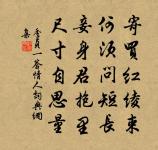 寄買紅綾束
何須問短長
妾身君抱里
尺寸自思量
李貞一答情人詞典網
集